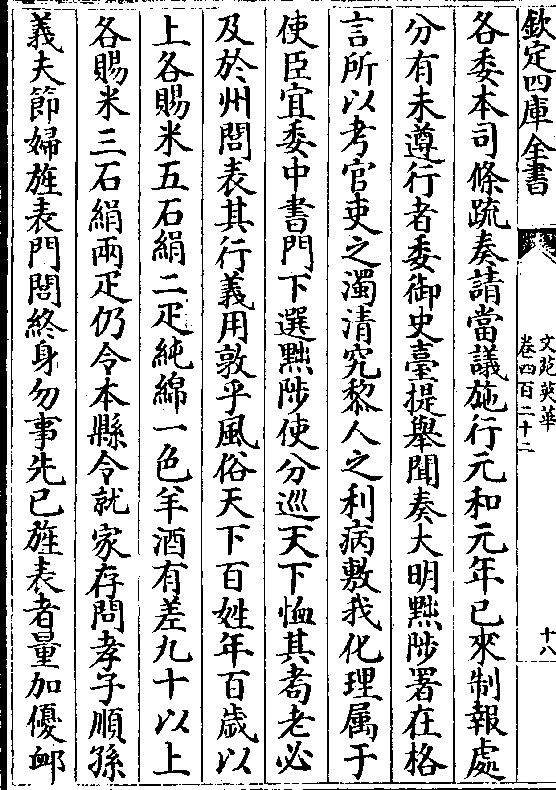 欽定四庫全書
文苑英華
卷四百二十二
十八
各委本司條疏奏請當議施行元和元年已來制報處
分有未遵行者委御史臺提舉聞奏大明黜陟署在格
言所以考官吏之濁清究黎人之利病敷我化理属于
使臣宜委中書門下選黜陟使分巡天下恤其耆老必
及於州閭表其行義用敦乎風俗天下百姓年百歲以
上各賜米五石絹二疋純綿一色羊酒有差九十以上
各賜米三石絹兩疋仍令本縣令就家存問孝子順孫
義夫節婦旌表門閭終身勿事先已旌表者量加優卹